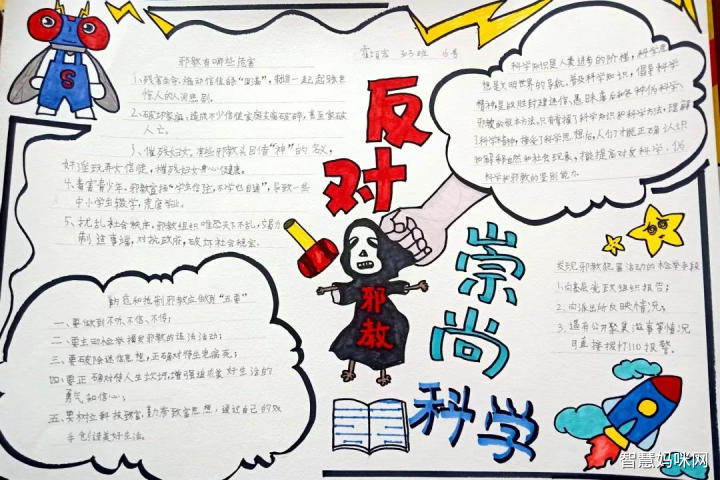 邪教有哪些危害
班
号
1、残害生命,煽动信徒的"圆满",制造一起起骇世
惊人的人间悲剧。
2、破坏家庭,造成不少信徒家庭支离破碎,甚至家破
人亡。
3、摧残妇女,有些邪教头目借"神"的名义,
奸淫玩弄女信徒,摧残妇女身心健康。
4、毒害青少年,邪教宣扬"学生信主,不学也自通",导致一些
中小学生辍学,荒废学业。
5、扰乱社会秩序,邪教组织唯恐天下不乱,
制造事端,对抗政府,破坏社会稳定。
反对
邪教
崇尚
科学
科学知识是人类进步的阶梯,科学思
想是文明世界的系统,普及科学知识,倡导科学
精神是战胜封建迷信、愚昧落后和各种伪科学、
邪教的根本方法,只有掌握了科学知识和科学方法,理解
了科学精神,接受了科学思想后,人们才能正确认识
和解释自然和社会现象,才能提高对反科学、伪
科学和邪教的鉴别能力。
防范和抵制邪教应做到"五要"
一、要做到不听、不信、不传;
二、要主动检举揭发邪教的违法活动;
三、要破除迷信思想,正确对待生老病死;
四、要正确对待人生坎坷,增强追求美好生活的
勇气和信心;
五、要树立科技致富,勤劳致富思想,通过自己的双
手创造美好生活。
发现邪教犯罪活动的检举手段
1.向基层党政组织报告;
2.向派出所反映情况;
3.遇有公开聚集滋事等情况
可直接拨打110报警。
S
智慧妈咪网